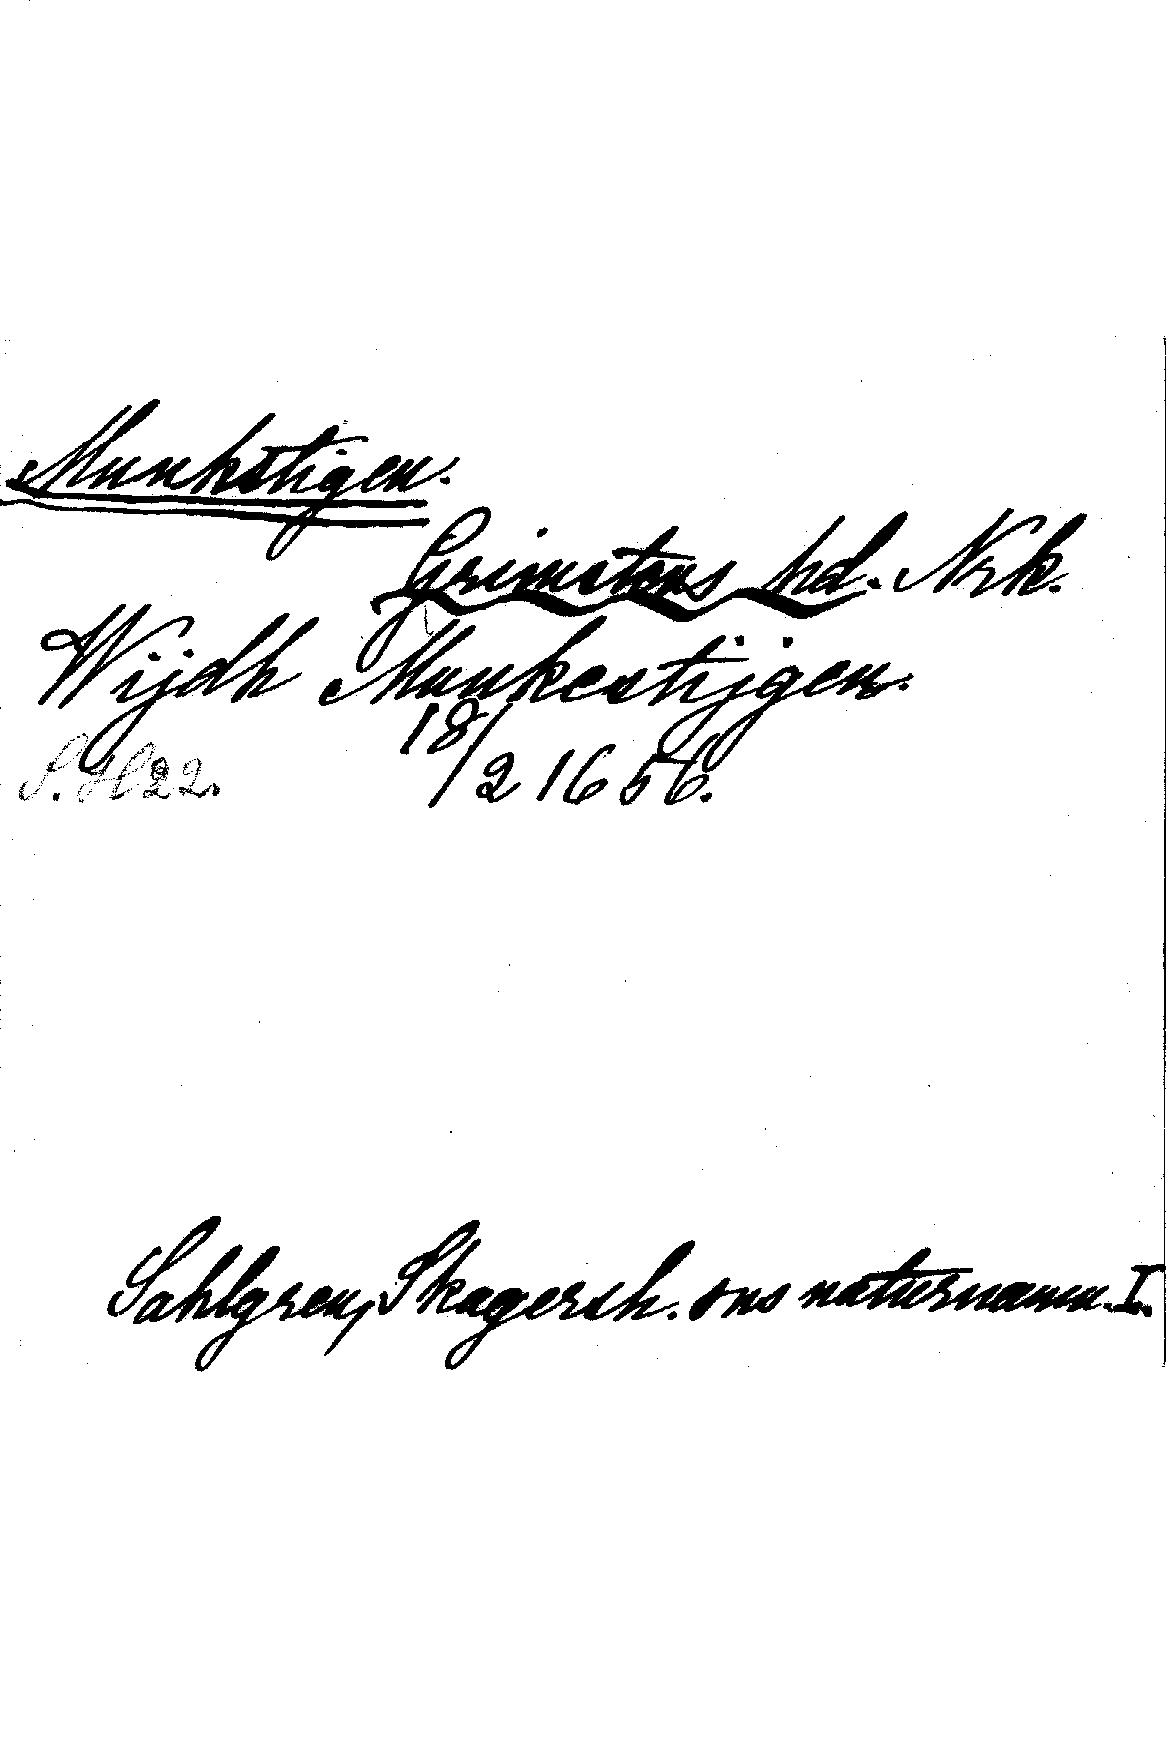 Munkstigen.
Grimstens hd. Nrk.
Wijdh Munkestijgen.
18/2 1656.
S. H22.
Sahlgren, Skagersh. sns naturnamn. I.